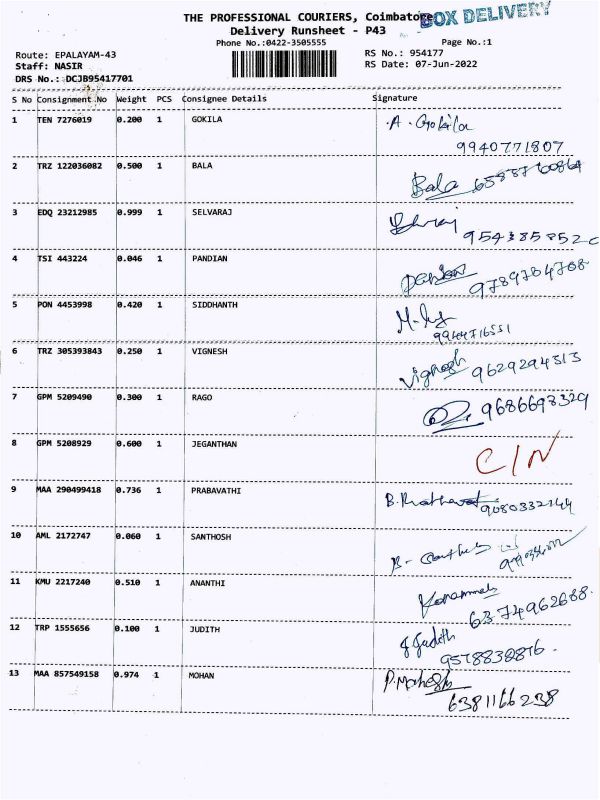 THE PROFESSIONAL COURIERS, Coimbatore
BOX DELIVERY
Delivery Runsheet - P43
Phone No.:0422-3505555
Page No.:1
Route: EPALAYAM-43
RS No.: 954177
Staff: NASIR
RS Date: 07-Jun-2022
DRS No.: DCJB95417701
S No Consignment No Weight PCS Consignee Details Signature
1 TEN 7276019 0.200 1 GOKILA A. Gokila
9940771807
2 TRZ 122036082 0.500 1 BALA
Bala
3 EDQ 23212985 0.999 1 SELVARAJ
4 TSI 443224 0.046 1 PANDIAN
9789784708
5 PON 4453998 0.420 1 SIDDHANTH
6 TRZ 305393843 0.250 1 VIGNESH
Vignesh 9629294313
7 GPM 5209490 0.300 1 RAGO
9686698329
8 GPM 5208929 0.600 1 JEGANTHAN
C/N
9 MAA 290499418 0.736 1 PRABAVATHI
10 AML 2172747 0.060 1 SANTHOSH
11 KMU 2217240 0.510 1 ANANTHI
6374962688
12 TRP 1555656 0.100 1 JUDITH
J Judith
9578838876
13 MAA 857549158 0.974 1 MOHAN
6381166238